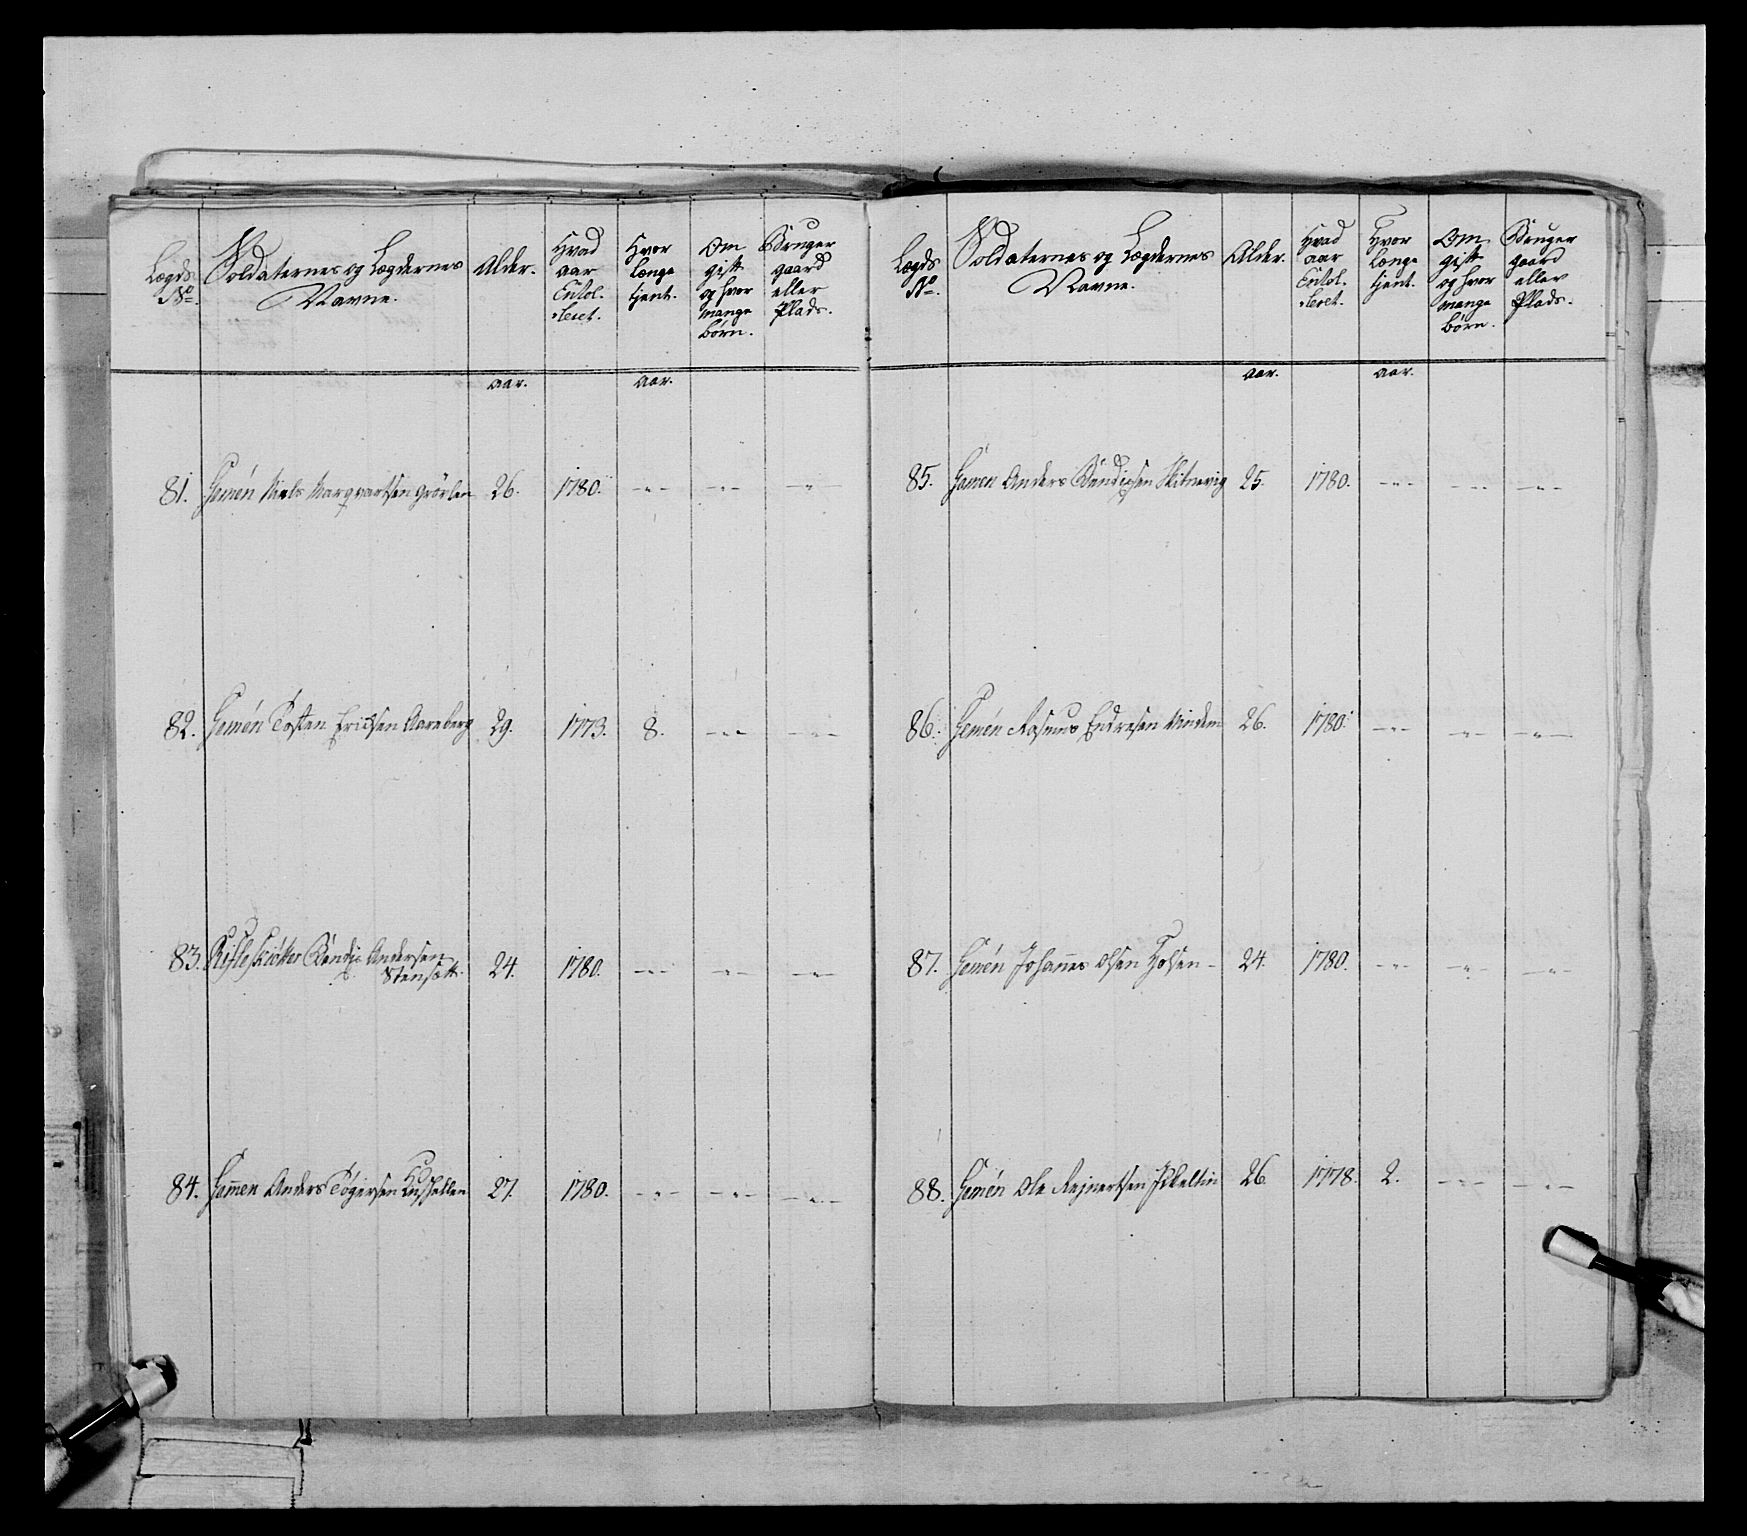 Lægds No.
Soldaternes og Lægdernes Navne.
Alder.
Hvad aar Enrol-leret.
Hvor længe tjent.
Om gift og hvor mange børn.
Bruger gaard eller Plads.
aar. aar.
81. Gemēn Niels Marqvartsen Grörlen 26. 1780. -"- -"- -"-
82. Gemēn Tosten Ericksen Aareberg 29. 1773. 8. -"- -"-
83. Rifleskiötter Bendix Andersen
Stensætt. 24. 1780. -"- -"- -"-
84. Gam̄en Anders Tögersen 27. 1780. -"- -"- -"-
Lægds No.
Soldaternes og Lægdernes Navne.
Alder.
Hvad aar Enrol-leret.
Hvor længe tjent.
Om gift og hvor mange børn.
Bruger gaard eller Plads.
aar. aar.
85. Gamen Anders Bendixsen Skitnevig 25. 1780. -"- -"- -"-
86. Gemēn Rasmus Endresen Vindem 26. 1780. -"- -"- -"-
87. Gemēn Johan̄es Olsen Holsen 24. 1780. -"- -"- -"-
88. Gemēn Ole Rejnertsen 26 1778. 2. -"- -"-